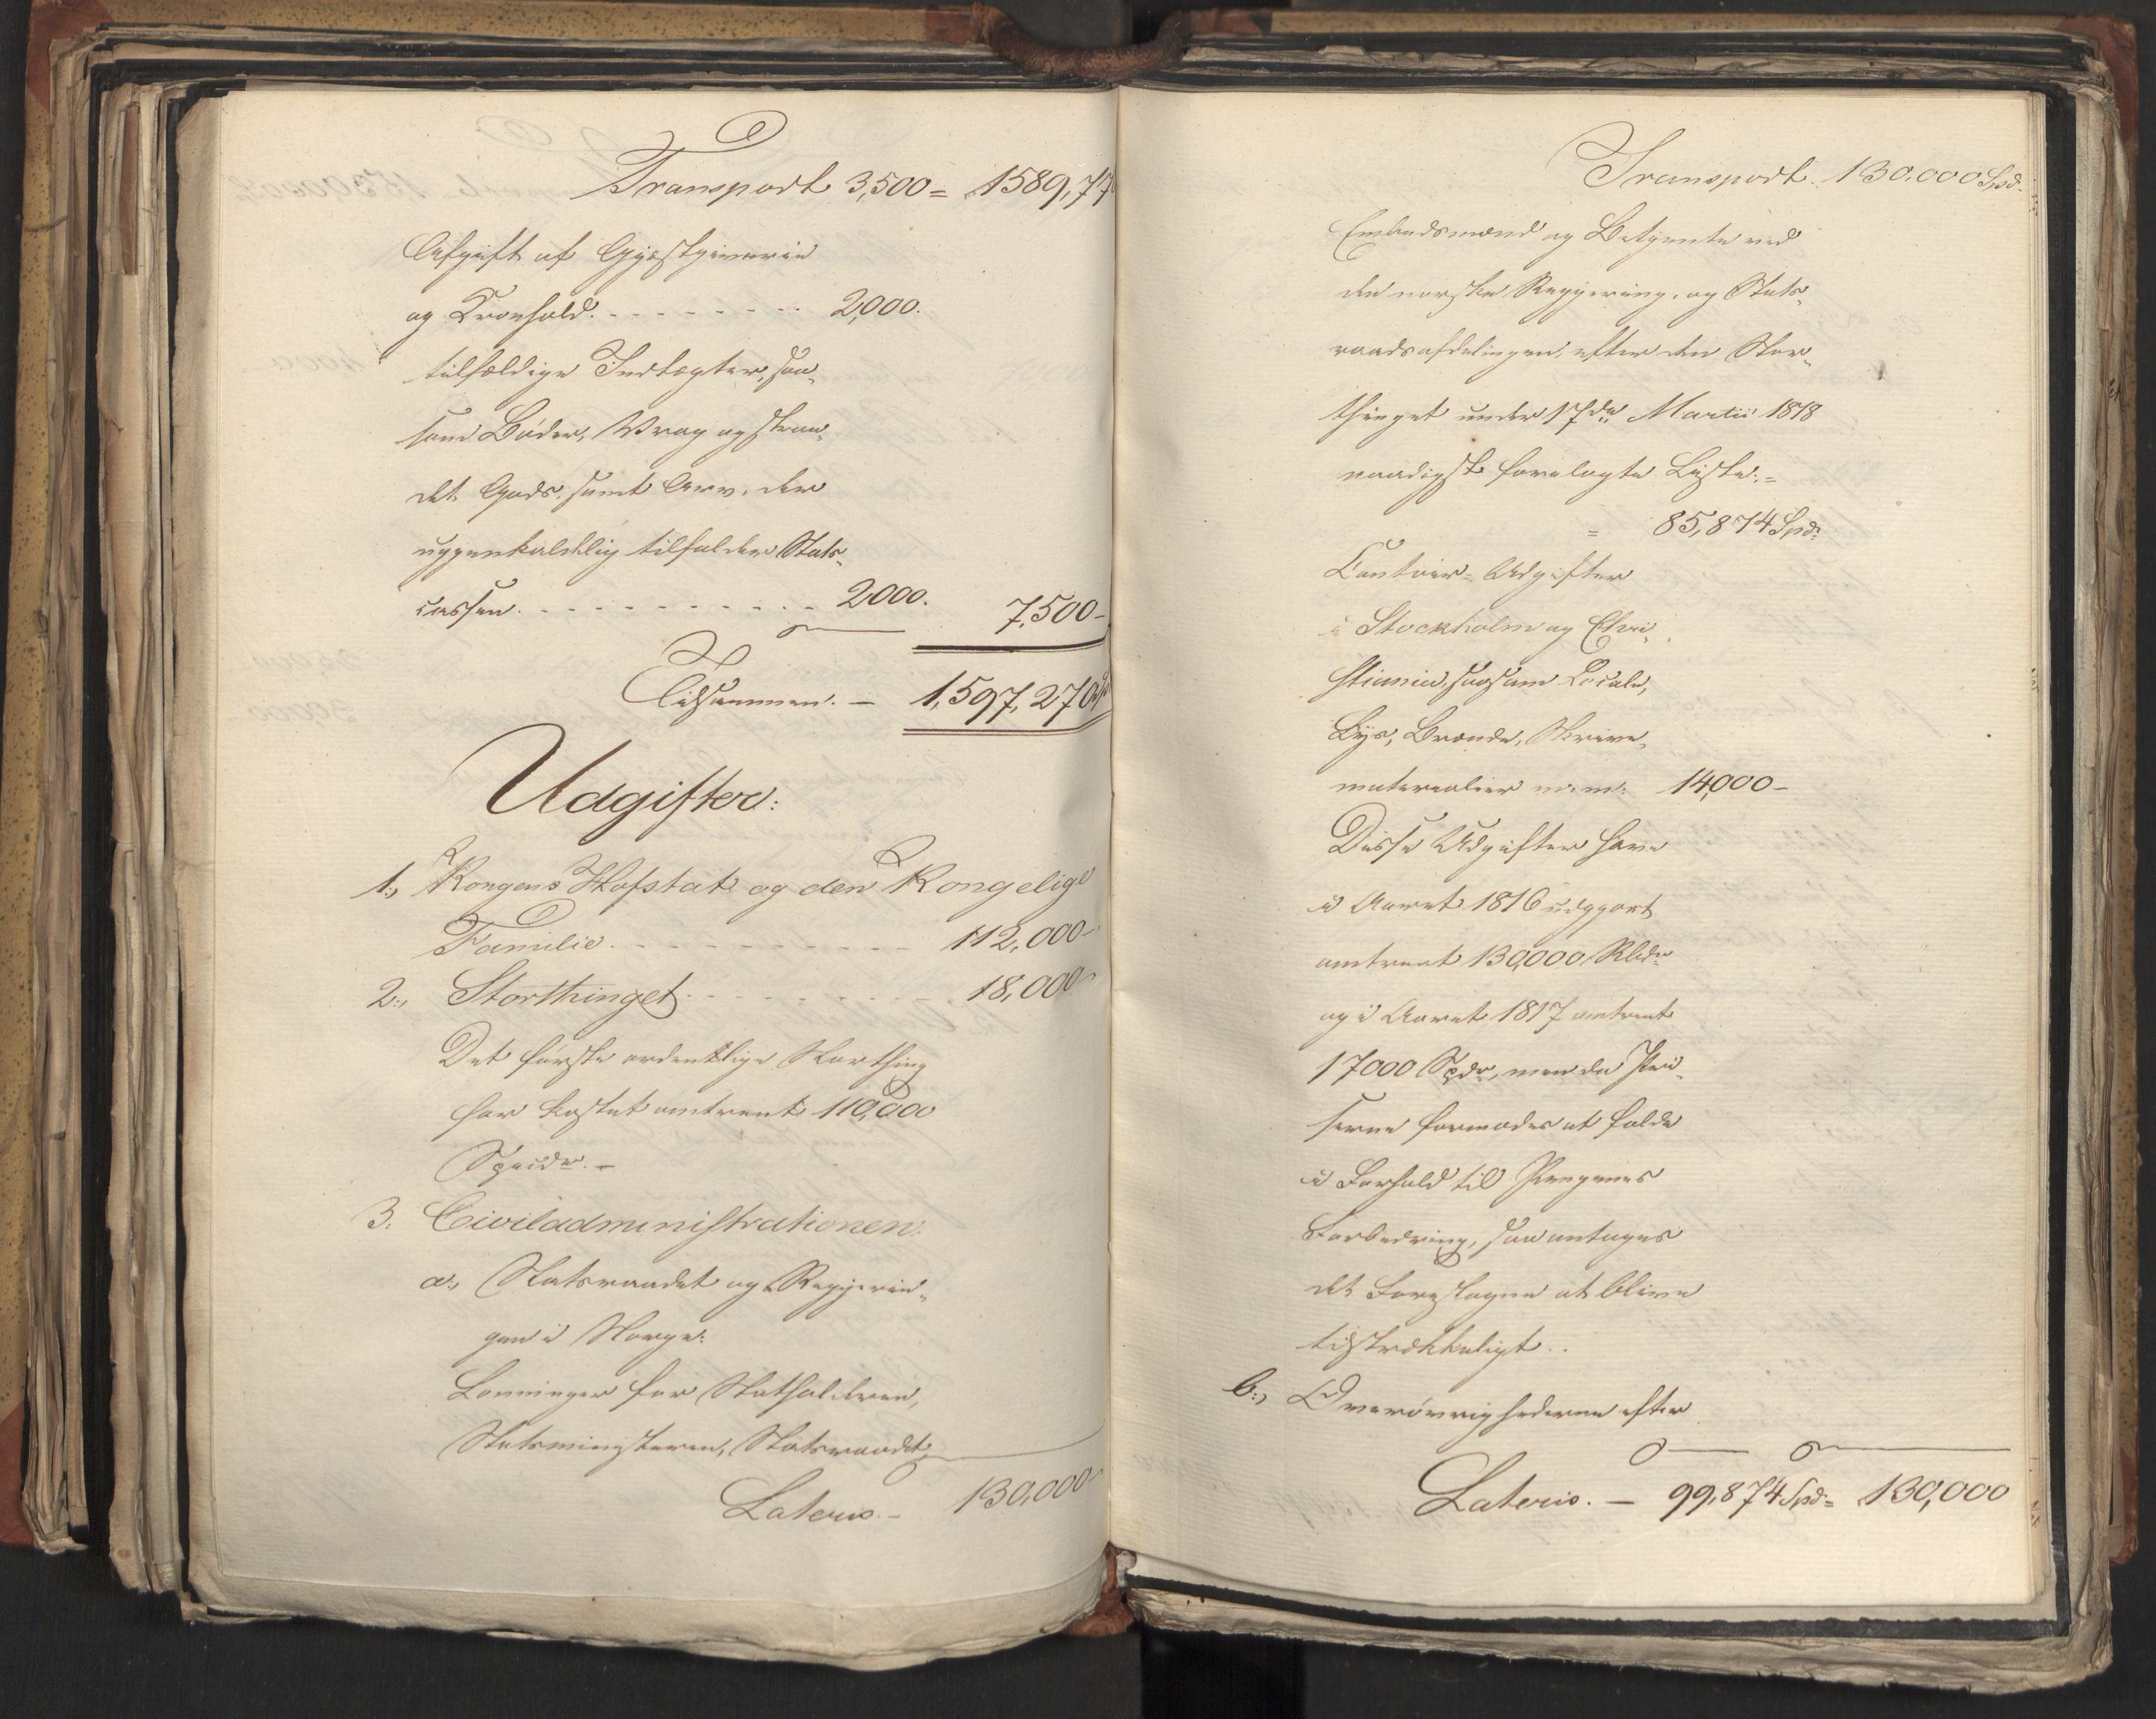 Transport 3,500 = 1589,77
Afgift af Gjæstgiverie
og Kroehold. - - - - - - - - 2,000.
tilfældige Indtægter, saa-
som Bøder, Vrag og stran-
det Gods, samt Arv, der
uigienkaldelig tilfalder Stats-
cassen. - - - - - - - - - - 2000. 7,500-
Tilsammen. - 1,597,270
Udgifter:
1., Kongens Hofstat og den Kongelige
Familie. - - - - - - - - - - 112,000-
2., Storthinget. - - - - - - - - 18,000
Det første ordentlige Storthing
har kostet omtrent 110,000
Specidr. -
3. Civiladministrationen:
a., Statsraadet og Regjerin-
gen i Norge.
Lønninger for Statholderen,
Statsministeren, Statsraadet,
Lateris - 130,000
Transport. 130,000 Spd.
Embedsmænd og Betjente ved
den norske Regjering, og Stats-
raadsafdelingen, efter den Stor-
thinget under 17de Martii 1818
naadigst forelagte Liste: =
= 85,874 Spd:
Contoir-Udgifter
i Stockholm og Chri-
stiania, saasom Locale,
Lys, Brænde, Skrive-
materialier m: m: 14,000 -
Disse Udgifter have
i Aaret 1816 udgjort
omtrent 130,000 Rbdr
og i Aaret 1817 omtrent
17000 Spdr, men da Pri-
serne formodes at falde
i Forhold til Pengenes
Forbedring, saa antages
det Foreslagne at blive
tilstrækkeligt.
b., Overøvrighederne efter
Lateris. - 99,874 Spd = 130,000